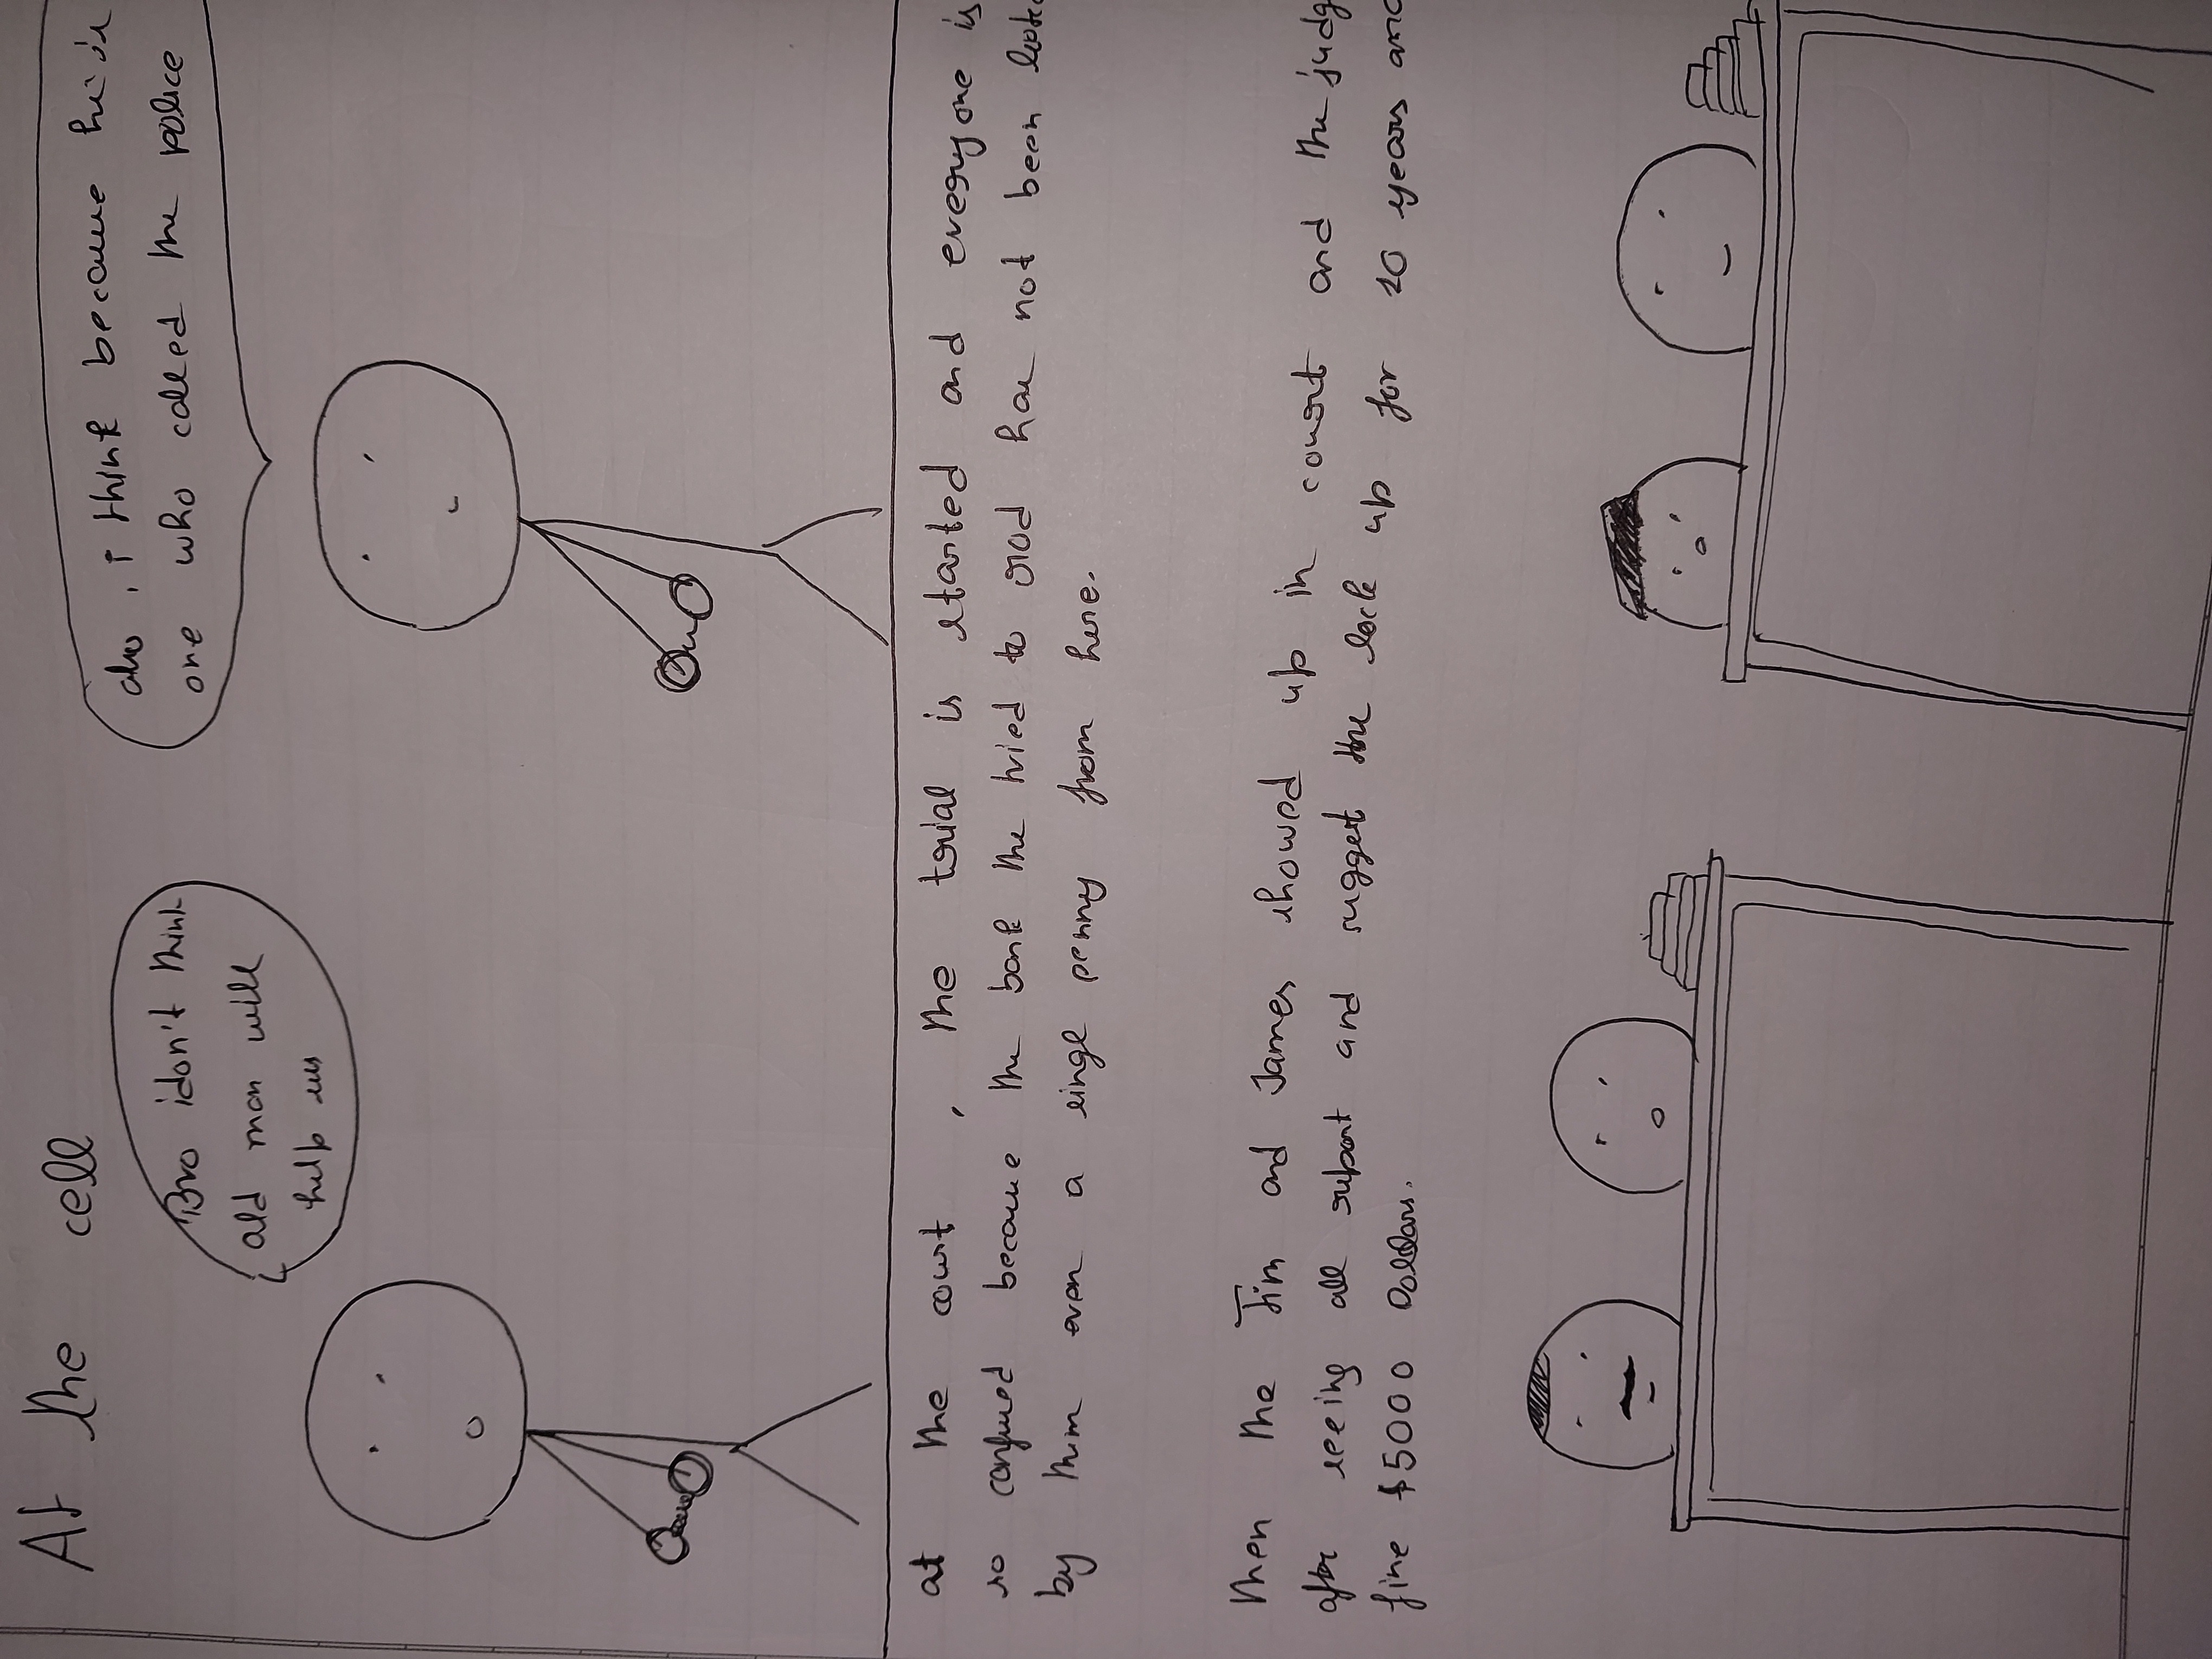 At the cell
Bro idon't think
old man will
help us
also, i think because he is
one who called the police
at the court, the trial is started and everyone is
so confused because the bank the tried to rob has not been
by them even a singl penny from here.
then the Jim and James showed up in court and the judg
after seeing all report and suggest the lock up for 10 years and
fine $5000 Dollars.